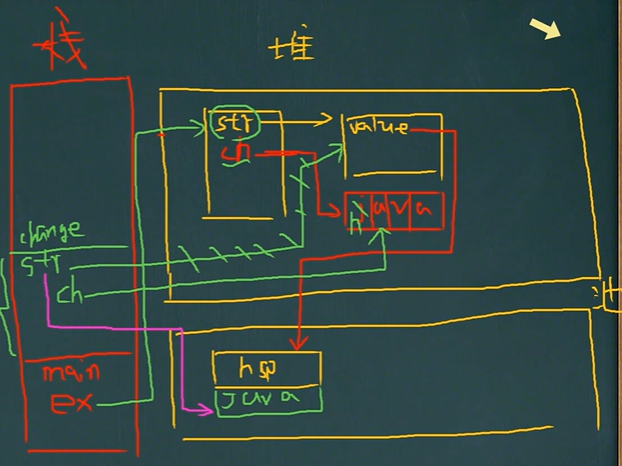 栈
堆
str
value
ch
h j a v a
change
str
ch
main
ex
hsp
java